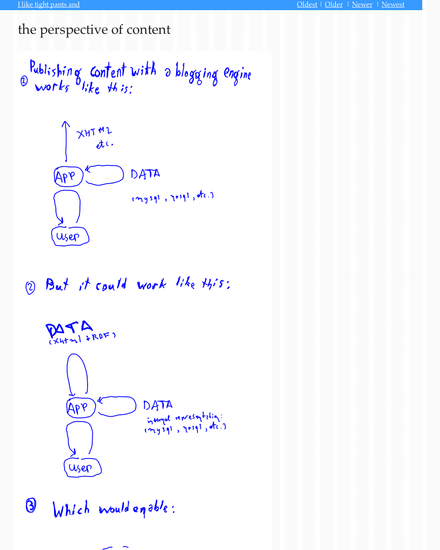 I like tight pants and
Oldest | Older | Newer | Newest
the perspective of content
① Publishing content with a blogging engine
works like this:
XHTML
etc.
APP
DATA
(mysql, posql, etc.)
user
② But it could work like this:
DATA
(XHTML + RDF)
APP
DATA
internal representation:
(mysql, posql, etc.)
user
③ Which would enable: